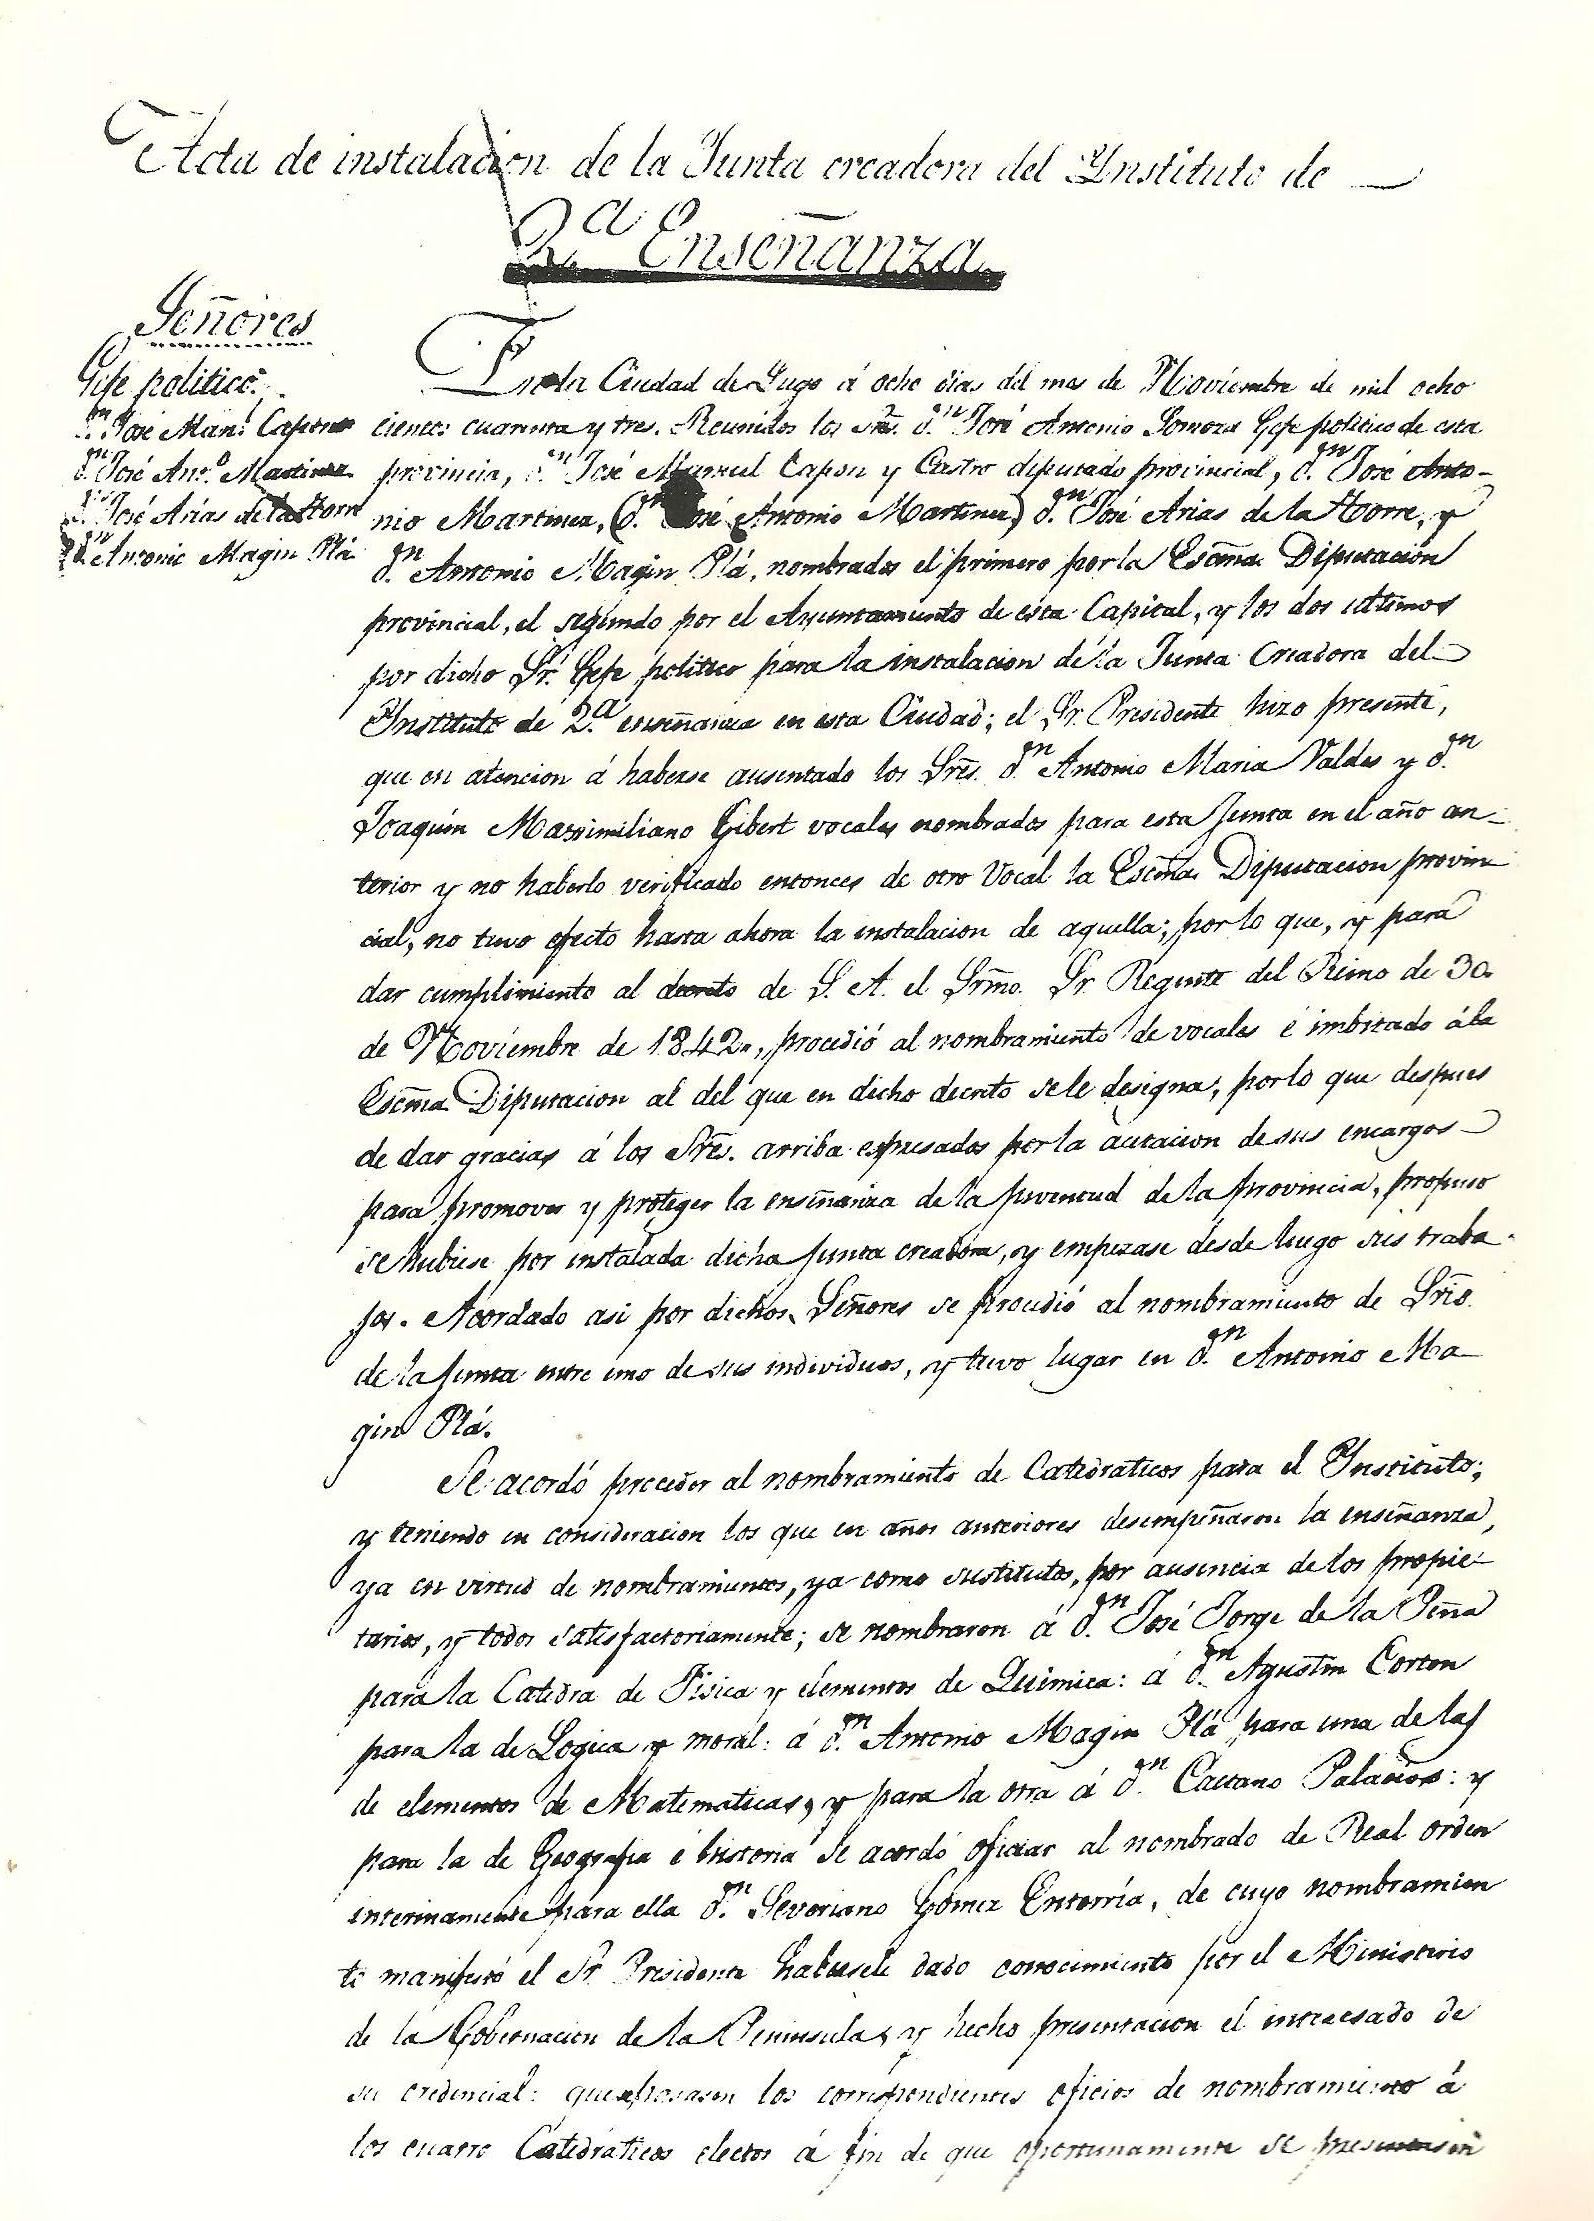 Acta de instalacion de la Junta creadora del Ynstituto de
2.ª Enseñanza
Señores
Gefe politico.
D.n José Man.l Capon
D.n José Ant.o Martinez
D.n José Arias de la Torre
D.n Antonio Magin Plá
En la Ciudad de Lugo á ocho dias del mes de Noviembre de mil ocho
cientos cuarenta y tres. Reunidos los Sres. D.n José Antonio Somoza Gefe politico de esta
provincia, D.n José Manuel Capon y Castro diputado provincial, D.n José Anto-
nio Martinez, (D.n José Antonio Martinez) D.n José Arias de la Torre, y
D.n Antonio Magin Plá, nombrados el primero por la Escma. Diputacion
provincial, el segundo por el Ayuntamiento de esta Capital, y los dos ultimos
por dicho Sr. Gefe politico para la instalacion de la Junta Creadora del
Ynstituto de 2.ª enseñanza en esta Ciudad; el Sr. Presidente hizo presente,
que en atencion á haberse ausentado los Sres. D.n Antonio Maria Valdes y D.n
Joaquin Massimiliano Gibert vocales nombrados para esta Junta en el año an-
terior y no haberlo verificado entonces de otro Vocal la Escma. Diputacion provin
cial, no tuvo efecto hasta ahora la instalacion de aquella; por lo que, y para
dar cumplimiento al decreto de S. A. el Srmo. Sr. Regente del Reino de 30.
de Noviembre de 1842., procedió al nombramiento de vocales é imbitado á la
Escma. Diputacion al del que en dicho decreto se le designa, por lo que despues
de dar gracias á los Sres. arriba espresados por la acetacion de sus encargos
para promover y proteger la enseñanza de la juventud de la provincia, propuso
se hubiese por instalada dicha Junta creadora, y empezase desde luego sus traba-
jos. Acordado asi por dichos Señores se procedió al nombramiento de Srio.
de la Junta entre uno de sus individuos, y tuvo lugar en D.n Antonio Ma
gin Plá.
Se acordó proceder al nombramiento de Catedraticos para el Ynstituto;
y teniendo en consideracion los que en años anteriores desempeñaron la enseñanza,
ya en virtud de nombramientos, ya como sustitutos, por ausencia de los propie-
tarios, y todos satisfactoriamente; se nombraron á D.n José Jorge de la Peña
para la Catedra de Fisica y elementos de Quimica: á D.n Agustin Corton
para la de Logica y moral: á D.n Antonio Magin Plá para una de las
de elementos de Matematicas, y para la otra á D.n Caetano Palacios: y
para la de Geografia é historia se acordó oficiar al nombrado de Real orden
interinamente para ella D.n Severiano Gómez Enterría, de cuyo nombramien
to manifestó el Sr. Presidente habersele dado conocimiento por el Ministerio
de la Gobernacion de la Peninsula, y hecho presentacion el interesado de
su credencial: que se pasasen los correspondientes oficios de nombramiento á
los cuatro Catedráticos electos á fin de que oportunamente se presentasen